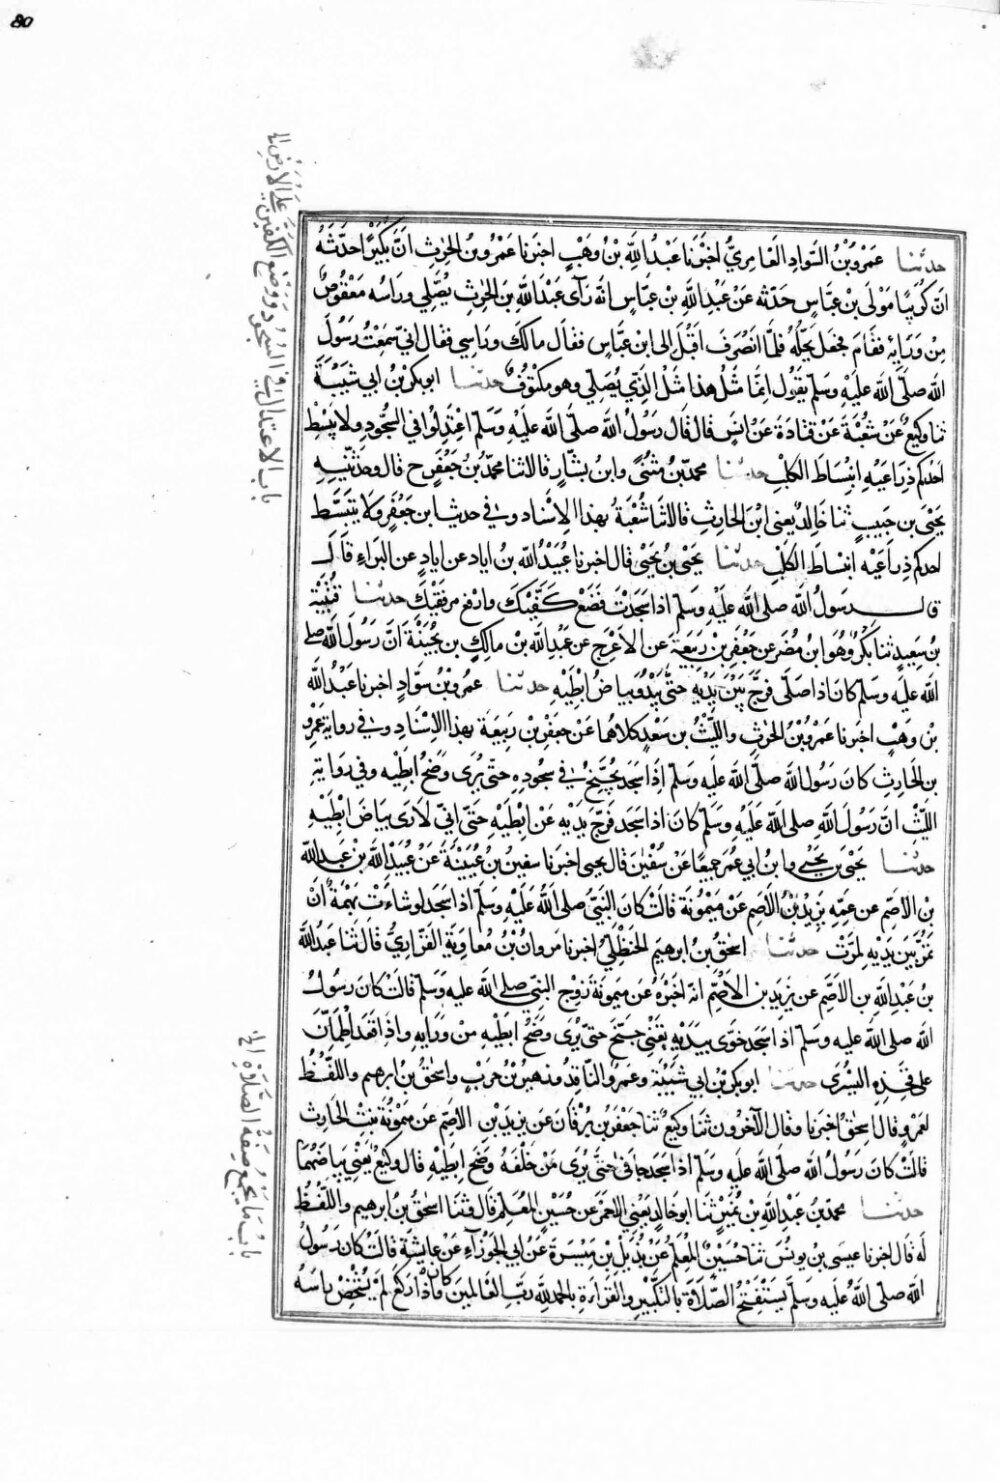 80
باب الاعتدال في السجود ووضع الكفين على الارض الخ
حدثنا عَمْرُو بْنُ السَّوادِ العَامِرِيُّ اخبَرَنا عَبْدُ اللهِ بْنُ وَهْبٍ اخبرنا عمرُو بن الحٰرثِ انَّ بُكَيْرًا حَدَّثَهُ
انَ كُرَيبًا مَوْلَى بْنِ عبَّاسٍ حَدّثه عَنْ عَبْدِ اللهِ بْنِ عبّاسٍ انَّه رَآى عَبْدَ اللهِ بنَ الحٰرِثِ يُصَلِّي وراسُه مَعْقُوصٌ
مِنْ وَرَايِهِ فقَامَ فجعَل يَحُلّهُ فلمَّا انصَرَفَ اقْبَلَ الى ابن عبَّاسٍ فقال مالكَ ورَاسِي فقال انّي سمَعْتُ رَسُولَ
الله صلّى الله عليهِ وسَلم يقُول انِمَّا مَثَلُ هذا مَثَلُ الذِي يُصَلّي وهو مكتُوفٌ حدثنا ابو بكر بْنُ ابي شَيْبَةَ
ثنا وكيعٌ عَنْ شعْبَةَ عَنْ قتادَةَ عَنْ انَسٍ قال قَالَ رَسُولُ الله صلّى الله عليْهِ وَسَلّم اعْتَدِلُوا في السُّجُودِ ولا يَبْسُطْ
احَدكم ذِرَاعَيْهِ انبِسَاطَ الكَلْبِ حدثنا محمّد بْنُ مثنّى وابنُ بشّارٍ قالا ثنا محمّدُ بْنُ جَعْفَرٍ ح قال وحدّثنِيهِ
يَحْيَى بن حَبيبٍ ثنا خَالِدٌ يَعني ابْنَ الحَارِثِ قالا ثنا شُعْبَةُ بهذا الاِسْنَادِ وفي حديث ابن جَعْفَرٍ ولا يَتَبَسَّطْ
احدكم ذِرَاعَيْهِ انبسَاطَ الكَلْبِ حدثنا يحْيَى بْنُ يَحْيَى قال اخبرنا عُبَيْدُ اللهِ بْنُ اياد عن ايادٍ عن البَرَاءِ قَالَ
قال رسُولُ الله صلى الله عليْهِ وسَلم اذا سَجَدْتَ فَضَعْ كَفَّيْكَ وارْفَع مرفقَيْكَ حدثنا قُتَيْبَة
بنُ سَعِيدٍ ثنا بَكْرٌ وهُوَ ابنُ مُضَر عن جعْفَرِ بْنِ رَبيعَةَ عن الاَعْرَج عن عبْدِ الله بن مالِكٍ بن بُحَيْنَةَ انَّ رَسُولَ الله صلى
اللهُ عليه وسَلم كانَ اذا صَلّى فرَّجَ بَيْنَ يَدَيْهِ حتّى يَبْدُوَ بيَاضُ ابْطَيْهِ حدثنا عمرُو بْنُ سَوَّادٍ اخبرنا عَبْدُ الله
بْنُ وَهْبٍ اخبَرنا عَمْرُو بْنُ الحٰرِثِ واللَّيْثُ بن سَعْدٍ كلاهُمَا عَنْ جعْفَر بْن رَبيعَةَ بهذا الاِسْنَادِ وفي رواية عَمْرِو
بن الحَارِثِ كانَ رَسُولُ الله صلّى الله عليه وسَلم اذَا سَجَدَ يُجَنِّحُ في سجُودِهِ حتّى يُرَى وَضَحُ ابطَيْهِ وفي رِوَايَةِ
اللَّيْثِ انَّ رَسُولَ اللهِ صلى الله عليهِ وسَلم كانَ اذا سَجَد فَرّجَ يَدَيْهِ عَنْ ابْطَيْهِ حتّى انّي لاَرَى بيَاضَ ابْطَيْهِ
حدثنا يَحْيَى بن يَحْيى وابنُ ابي عُمَرَ جميعًا عَنْ سُفْيٰنَ قال يحيى اخبرنا سفينُ بْنُ عُيَيْنَةَ عَنْ عُبَيْدِ اللهِ بْنِ عَبدِ الله
بْنِ الاَصَمّ عن عَمّهِ يَزِيدَ بْنِ الاَصَمّ عَنْ مَيْمُونَةَ قالتْ كانَ النَّبيّ صلى اللهُ عَلَيْهِ وسَلم اذا سَجَد لو شاءَتْ بَهْمَةٌ انْ
تمُرَّ بَيْنَ يَدَيْهِ لمرّتْ حدثنا اسحٰقُ بنُ ابرٰهيمَ الحَنظَليّ اخبرنا مَروانُ بْنُ معاوِيَةَ الفَزَاريُّ قَالَ ثَنا عبَيْدُ الله
بنُ عَبْدِ اللّٰهِ بن الاصَمّ عن يَزيد بن الاَصَمّ انّهُ اخبَرَهُ عَنْ ميمُونَةَ زَوْجِ النبيّ صلى الله عليهِ وسَلم قالَتْ كانَ رسُولُ
الله صلى اللهُ عليه وسَلم اذا سَجد خَوّى بيَدَيْهِ يعْنِي جَنَّحَ حتّى يُرَى وَضَحُ ابطَيْهِ مِنْ وَرَايِهِ واذَا قعَدَ اطْمَأَنَّ
على فخِذِهِ اليُسْرَى حدثنا ابو بكر بْنُ ابي شَيْبَةَ وعَمْرٌو النَّاقِدُ وزهيرُ بْنُ حَرْبٍ واسحٰقُ بْنُ ابرٰهيم واللّفْظُ
لعمْرٍو قال اسحٰقُ اخبَرَنا وقال الآخَرُونَ ثنا وكيعٌ ثنا جَعْفَر بْنُ بُرْقَانَ عَن يَزيدَ بْن الاصَمّ عَنْ مَيْمُونَةَ بنْتِ الحَارِثِ
قالتْ كانَ رَسُولُ الله صلّى الله عليه وسَلم اذا سَجَد جافى حتّى يُرى مَنْ خَلْفَهُ وَضَحَ ابطَيْهِ قال وكيعٌ يَعْنِي بيَاضَهُمَا
حدثنا محمّد بْنُ عَبْدِ اللهِ بْنِ نُمَيْرٍ ثنا ابو خالدٍ يَعْنِي الاحمَرَ عَن حُسَيْنٍ المُعَلّم قال وثَنا اسحٰقُ بن ابرٰهيم واللفْظُ
لَه قال اخبرنا عيسَى بن يونسَ ثنا حُسَيْنٌ المُعَلّمُ عَنْ بُدَيْلِ بْنِ مَيْسَرَةَ عَنْ ابي الجَوْزَآءِ عَنْ عايشَةَ قالتْ كانَ رَسُولُ
الله صلى اللهُ عليه وسَلم يَسْتَفْتِحُ الصّلاَةَ بالتكْبِيرِ والقرَاءَةِ بالحمدُ للّهِ ربّ العَالمينَ وكان اذا ركَعَ لمْ يُشْخِصْ راسَهُ
باب ما يجمع صفة الصلاة الخ